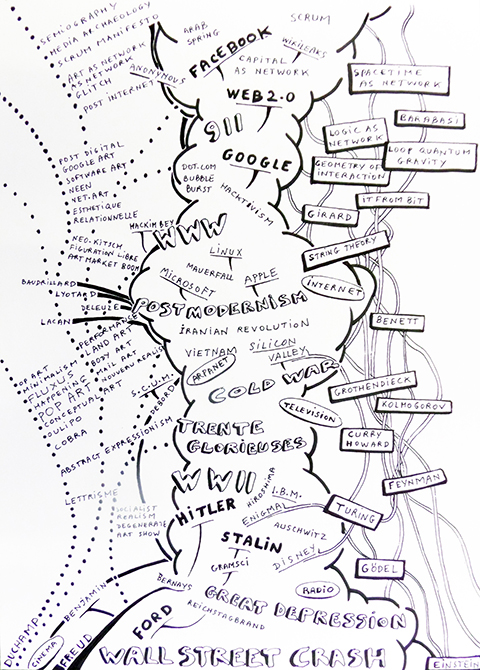 SEMIOGRAPHY
MEDIA ARCHAEOLOGY
SCRUM MANIFESTO
ARAB
SPRING
SCRUM
WIKILEAKS
FACEBOOK
ART AS NETWORK
AS NETWORK
GLITCH
ANONYMOUS
CAPITAL
AS NETWORK
SPACETIME
AS NETWORK
POST INTERNET
WEB 2.0
BARABASI
911
LOGIC AS
NETWORK
LOOP QUANTUM
GRAVITY
POST DIGITAL
GOOGLE ART
SOFTWARE ART
NEEN
NET.ART
ESTHETIQUE
RELATIONNELLE
DOT.COM
BUBBLE
BURST
GOOGLE
GEOMETRY OF
INTERACTION
HACKTIVISM
IT FROM BIT
GIRARD
HACKIM BEY
WWW
NEO-KITSCH
FIGURATION LIBRE
ART MARKET BOOM
LINUX
STRING THEORY
MAUERFALL
MICROSOFT
APPLE
INTERNET
BAUDRILLARD
LYOTARD
DELEUZE
LACAN
POSTMODERNISM
IRANIAN REVOLUTION
BENETT
PERFORMANCE
LAND ART
BODY ART
MAIL ART
NOUVEAU REALISM
ART
VIETNAM
SILICON
VALLEY
ARPANET
OP ART
MINIMALISM
FLUXUS
HAPPENING
POP ART
CONCEPTUAL
OULIPO
COBRA
S.C.U.M.
DEBORD
COLD WAR
GROTHENDIECK
KOLMOGOROV
TELEVISION
ABSTRACT EXPRESSIONISM
TRENTE
GLORIEUSES
CURRY
HOWARD
WWII
FEYNMAN
LETTRISME
HIROSHIMA
I.B.M.
SOCIALIST
REALISM
DEGENERATE
ART SHOW
HITLER
ENIGMA
TURING
AUSCHWITZ
STALIN
DISNEY
GRAMSCI
GÖDEL
BERNAYS
BENJAMIN
RADIO
GREAT DEPRESSION
REICHSTAGBRAND
FORD
DUCHAMP
CINEMA
FREUD
WALL STREET CRASH
EINSTEIN